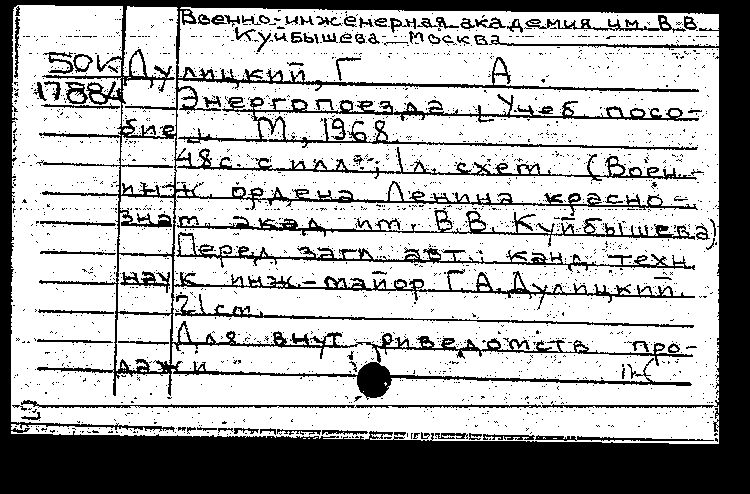 Военно-инженерная академия им. В.В.
Куйбышева Москва
50К Дулицкий, Г А.
17884 Энергопоезда. [Учеб посо-
бие]. М., 1968.
48с. с илл.; 1л. схем. (Воен.-
инж. ордена Ленина красно-
знам. акад им. В.В. Куйбышева)
Перед загл. авт.: канд. техн
наук инж.-майор Г.А. Дулицкий.
21см.
Для внут риведомств про-
дажи